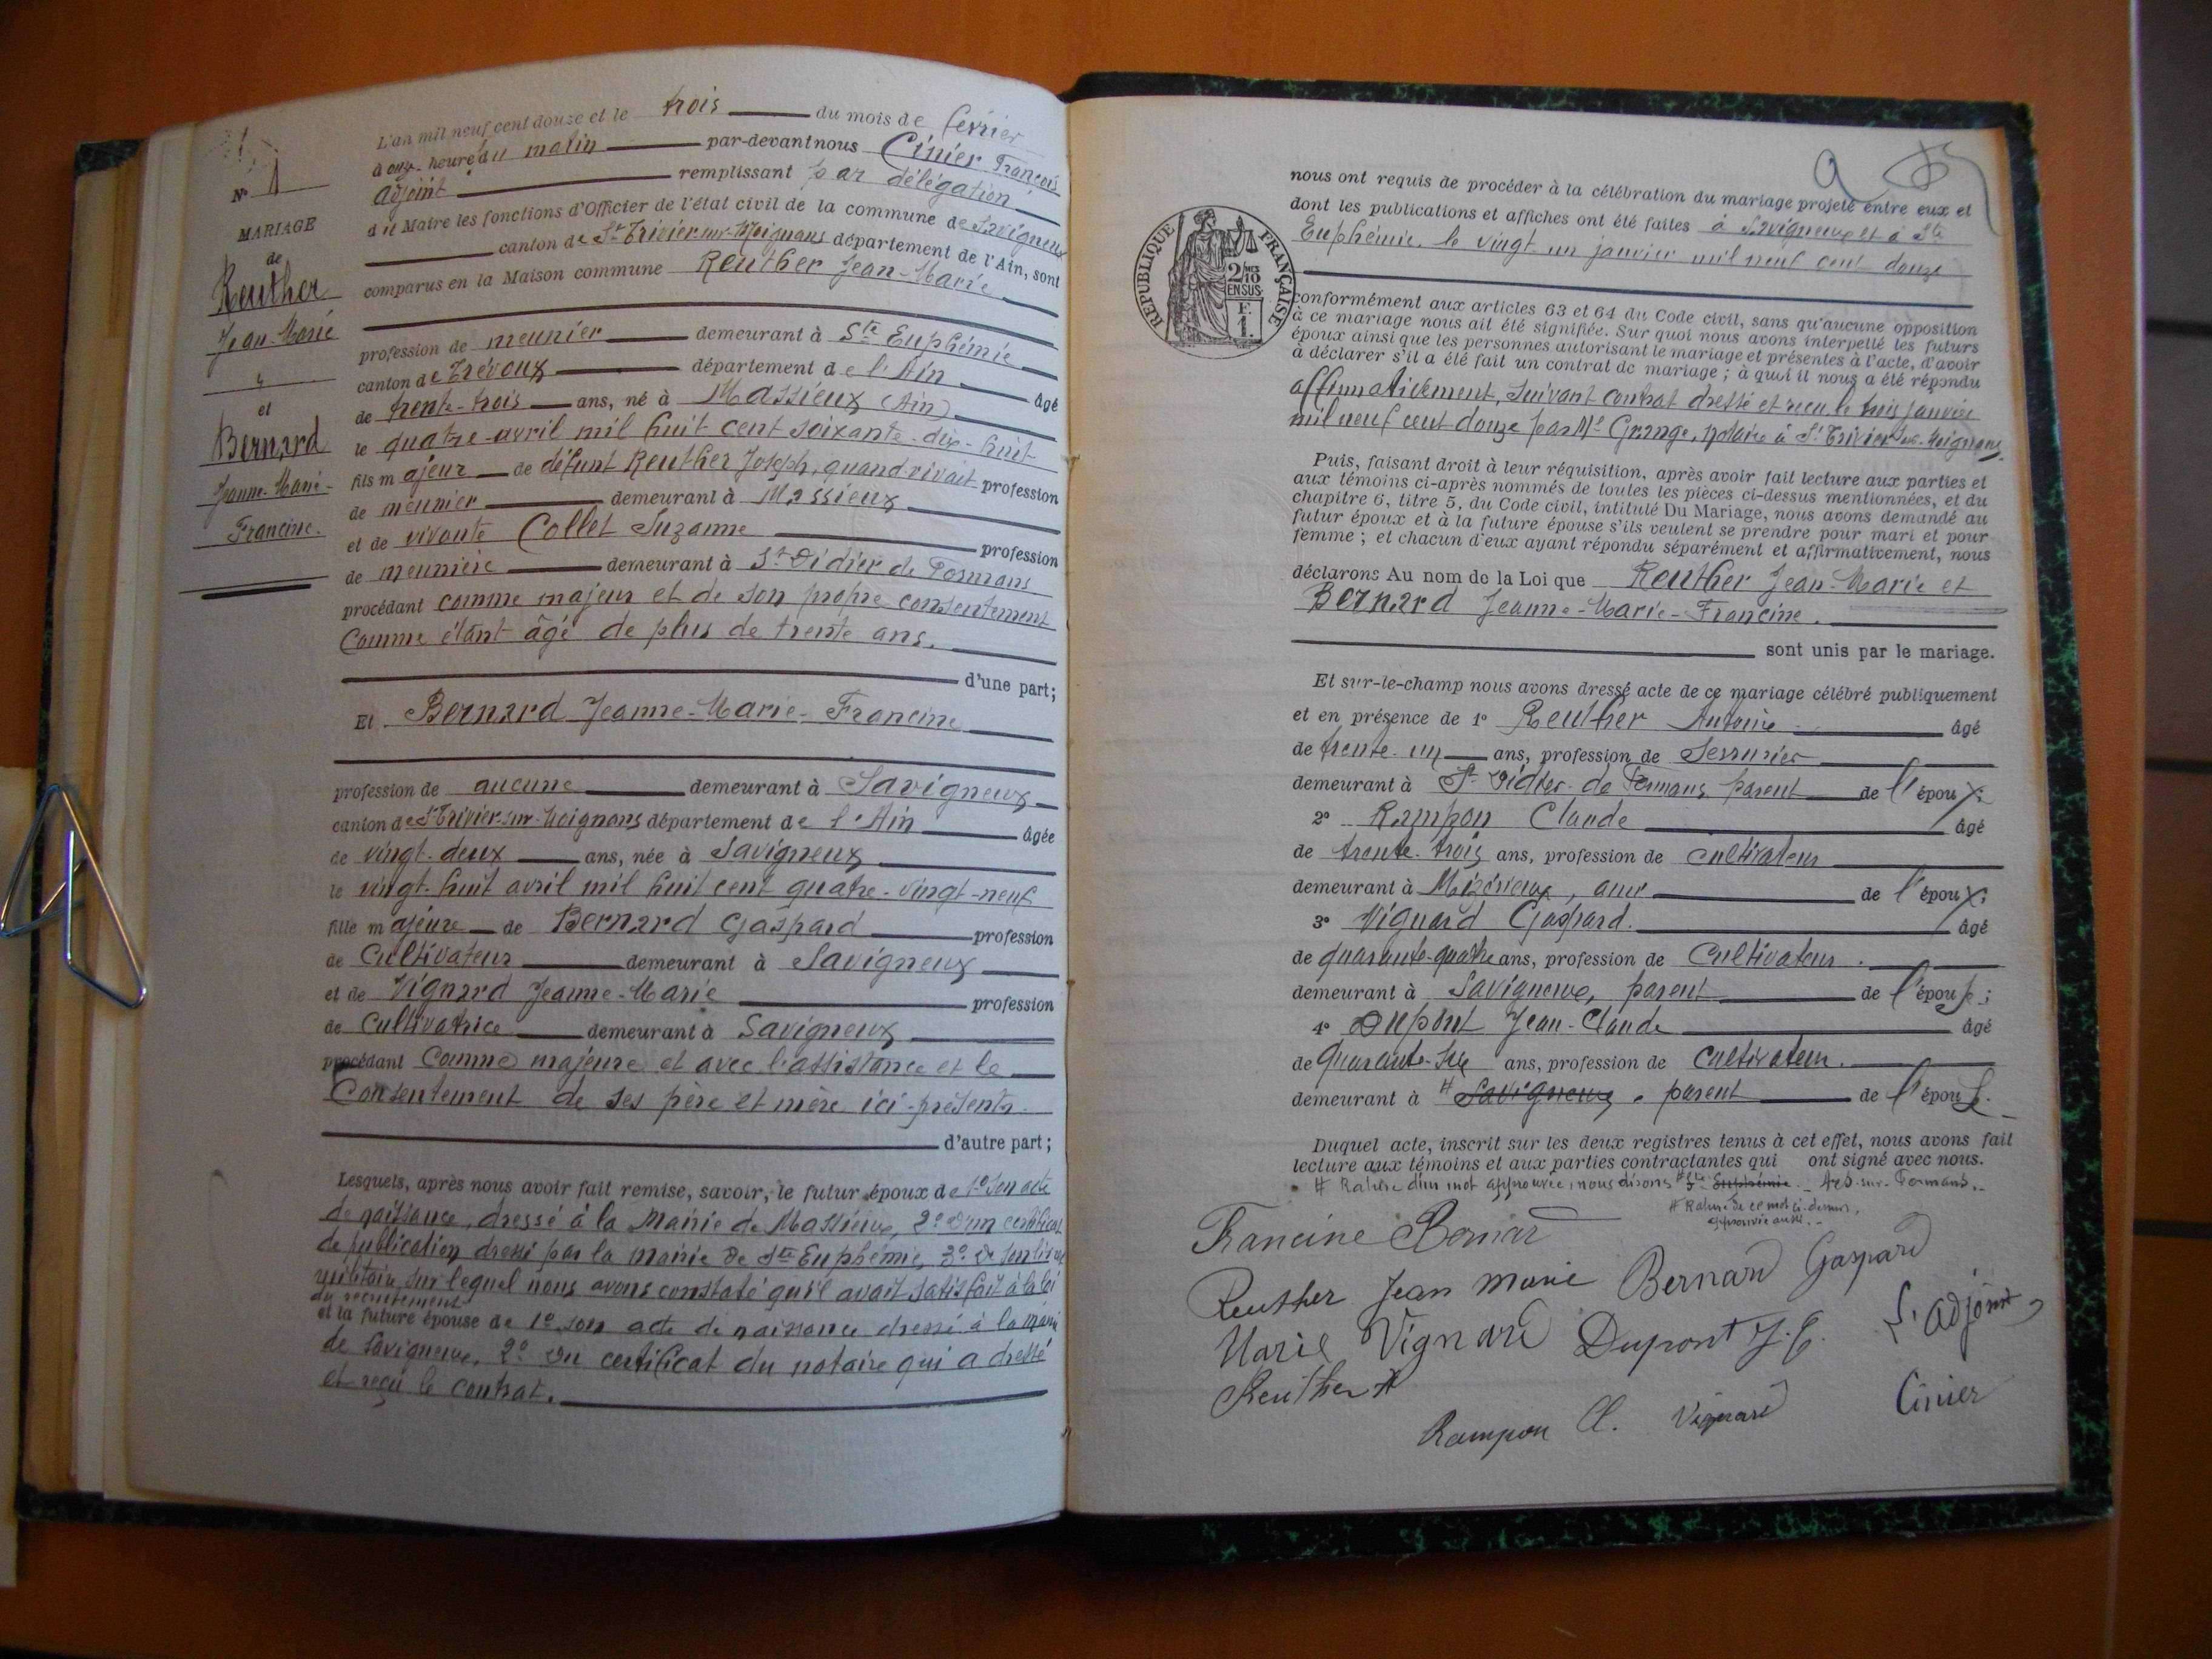 N° 1
MARIAGE
de
Reuther
Jean-Marie
et
Bernard
Jeanne-Marie-
Francine.
L'an mil neuf cent douze et le trois du mois de février
à onze heure du matin par-devant nous Cinier François
adjoint remplissant par délégation
du Maire les fonctions d'Officier de l'état civil de la commune de Savigneux
canton de St Trivier-sur-Moignans département de l'Ain, sont
comparus en la Maison commune Reuther Jean-Marie
profession de meunier demeurant à Ste Euphémie
canton de Trévoux département de l'Ain âgé
de trente-trois ans, né à Massieux (Ain)
le quatre avril mil huit cent soixante-dix-huit
fils majeur de défunt Reuther Joseph, quand vivait profession
de meunier demeurant à Massieux
et de vivante Collet Suzanne profession
de meunière demeurant à St Didier de Formans
procédant comme majeur et de son propre consentement
comme étant âgé de plus de trente ans.
d'une part;
Et Bernard Jeanne-Marie-Francine
profession de aucune demeurant à Savigneux
canton de St Trivier-sur-Moignans département de l'Ain âgée
de vingt-deux ans, née à Savigneux
le vingt-huit avril mil huit cent quatre-vingt-neuf
fille majeure de Bernard Gaspard profession
de Cultivateur demeurant à Savigneux
et de Vignard Jeanne-Marie profession
de Cultivatrice demeurant à Savigneux
procédant comme majeure et avec l'assistance et le
Consentement de ses père et mère ici-présents.
d'autre part;
Lesquels, après nous avoir fait remise, savoir, le futur époux de 1° son acte
de naissance, dressé à la Mairie de Massieux, 2° d'un certificat
de publication dressé par la mairie de Ste Euphémie, 3° de son livret
militaire sur lequel nous avons constaté qu'il avait satisfait à la loi
du recrutement
et la future épouse de 1° son acte de naissance dressé à la mairie
de Savigneux, 2° du certificat du notaire qui a dressé
et reçu le contrat.
9
RÉPUBLIQUE FRANÇAISE
2/10 EN SUS
F. 1.
nous ont requis de procéder à la célébration du mariage projeté entre eux et
dont les publications et affiches ont été faites à Savigneux et à Ste
Euphémie, le vingt-un janvier mil neuf cent douze
conformément aux articles 63 et 64 du Code civil, sans qu'aucune opposition
à ce mariage nous ait été signifiée. Sur quoi nous avons interpellé les futurs
époux ainsi que les personnes autorisant le mariage et présentes à l'acte, d'avoir
à déclarer s'il a été fait un contrat de mariage ; à quoi il nous a été répondu
affirmativement, suivant contrat dressé et reçu le trois janvier
mil neuf cent douze par Me Grange, notaire à St Trivier sur-Moignans.
Puis, faisant droit à leur réquisition, après avoir fait lecture aux parties et
aux témoins ci-après nommés de toutes les pièces ci-dessus mentionnées, et du
chapitre 6, titre 5, du Code civil, intitulé Du Mariage, nous avons demandé au
futur époux et à la future épouse s'ils veulent se prendre pour mari et pour
femme ; et chacun d'eux ayant répondu séparément et affirmativement, nous
déclarons Au nom de la Loi que Reuther Jean-Marie et
Bernard Jeanne-Marie-Francine.
sont unis par le mariage.
Et sur-le-champ nous avons dressé acte de ce mariage célébré publiquement
et en présence de 1° Reuther Antoine âgé
de trente-un ans, profession de Serrurier
demeurant à St Didier de Formans, parent de l'époux;
2° Rampon Claude âgé
de trente-trois ans, profession de cultivateur
demeurant à Mizérieux, ami de l'époux;
3° Viguard Gaspard. âgé
de quarante-quatre ans, profession de Cultivateur.
demeurant à Savigneux, parent de l'épouse;
4° Dupont Jean-Claude âgé
de quarante-six ans, profession de cultivateur.
demeurant à # Savigneux, parent de l'épouse.
Duquel acte, inscrit sur les deux registres tenus à cet effet, nous avons fait
lecture aux témoins et aux parties contractantes qui ont signé avec nous.
# Rature d'un mot approuvée, nous disons # Ste Euphémie - Ars-sur-Formans.
# Rature de ce mot ci-dessus,
approuvée aussi.
Francine Bernard
Reuther Jean marie Bernard Gaspard
Marie Vignard Dupont J. C. L'adjoint
Reuther A
Rampon Cl. Vignard Cinier